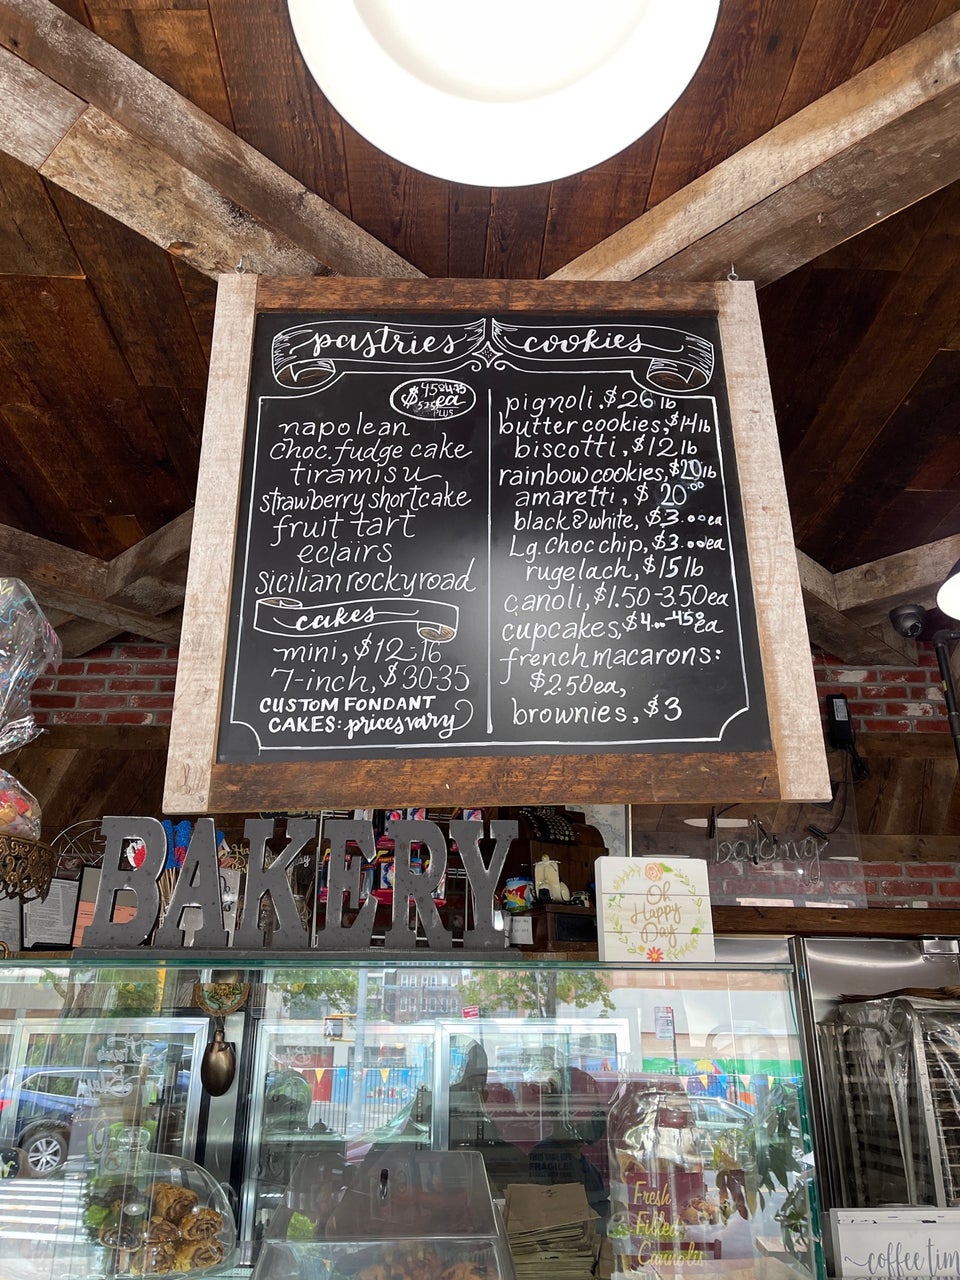 pastries
cookies
napolean
choc. fudge cake
tiramisu
strawberry shortcake
fruit tart
eclairs
sicilian rocky road
cakes
mini, $12-16
7-inch, $30-35
CUSTOM FONDANT
CAKES: prices vary
pignoli, $26 lb
butter cookies, $14 lb
biscotti, $12 lb
rainbow cookies, $20 lb
amaretti, $20.00
black & white, $3.00 ea
Lg. Choc chip, $3.00 ea
rugelach, $15 lb
canoli, $1.50-3.50 ea
cupcakes, $4.00-4.50 ea
french macarons:
$2.50 ea,
brownies, $3
BAKERY
baking
Oh
Happy
Day
FRAGILE
Fresh
Filled
Cannolis
coffee tim